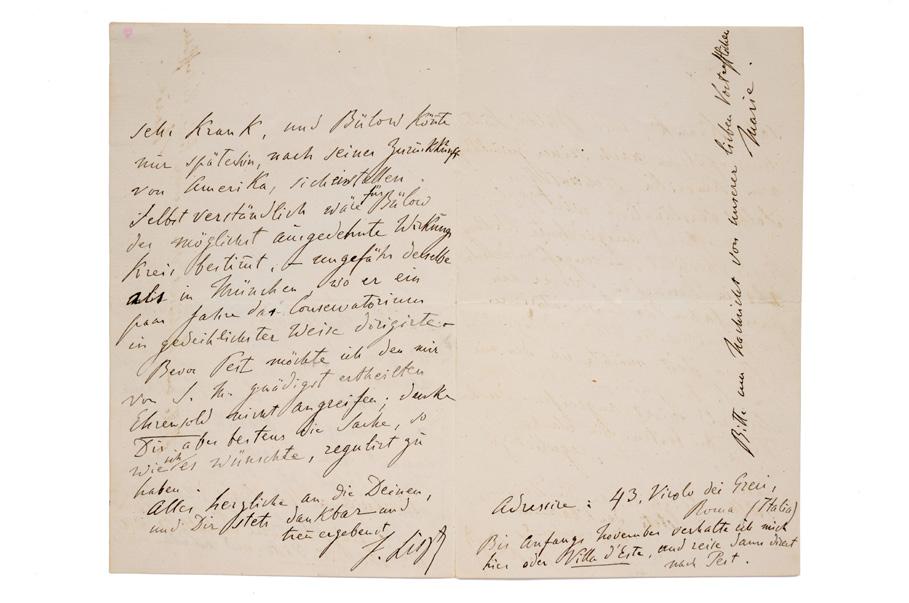 sehr Krank, und Bülow könte
nur späterhin, nach seiner Zurückkunft
von Amerika, sich einstellen.
Selbstverständlich wäre für Bülow
der möglichst ausgedehnte Wirkungs
Kreis bestimt, – ungefähr derselbe
als in München wo er ein
paar Jahre das Conservatorium
in gedeihlichster Weise dirigirte –
Bevor Pest möchte ich den mir
von S. M. gnädigst ertheilten
Ehrensold nicht angreifen; danke
Dir aber bestens die Sache, so
wie ich es wünschte, regulirt zu
haben.
Alles herzliche an die Deinen,
und Dir stets dankbar und
treu ergebenst
F. Liszt
Bitte um Nachricht von unserer lieben Vortrefflichen
Marie.
Adresse: 43, Vicolo dei Greci,
Roma (Italia)
Bis Anfangs November verhalte ich mich
hier oder Villa d'Este, und reise dann direct
nach Pest.